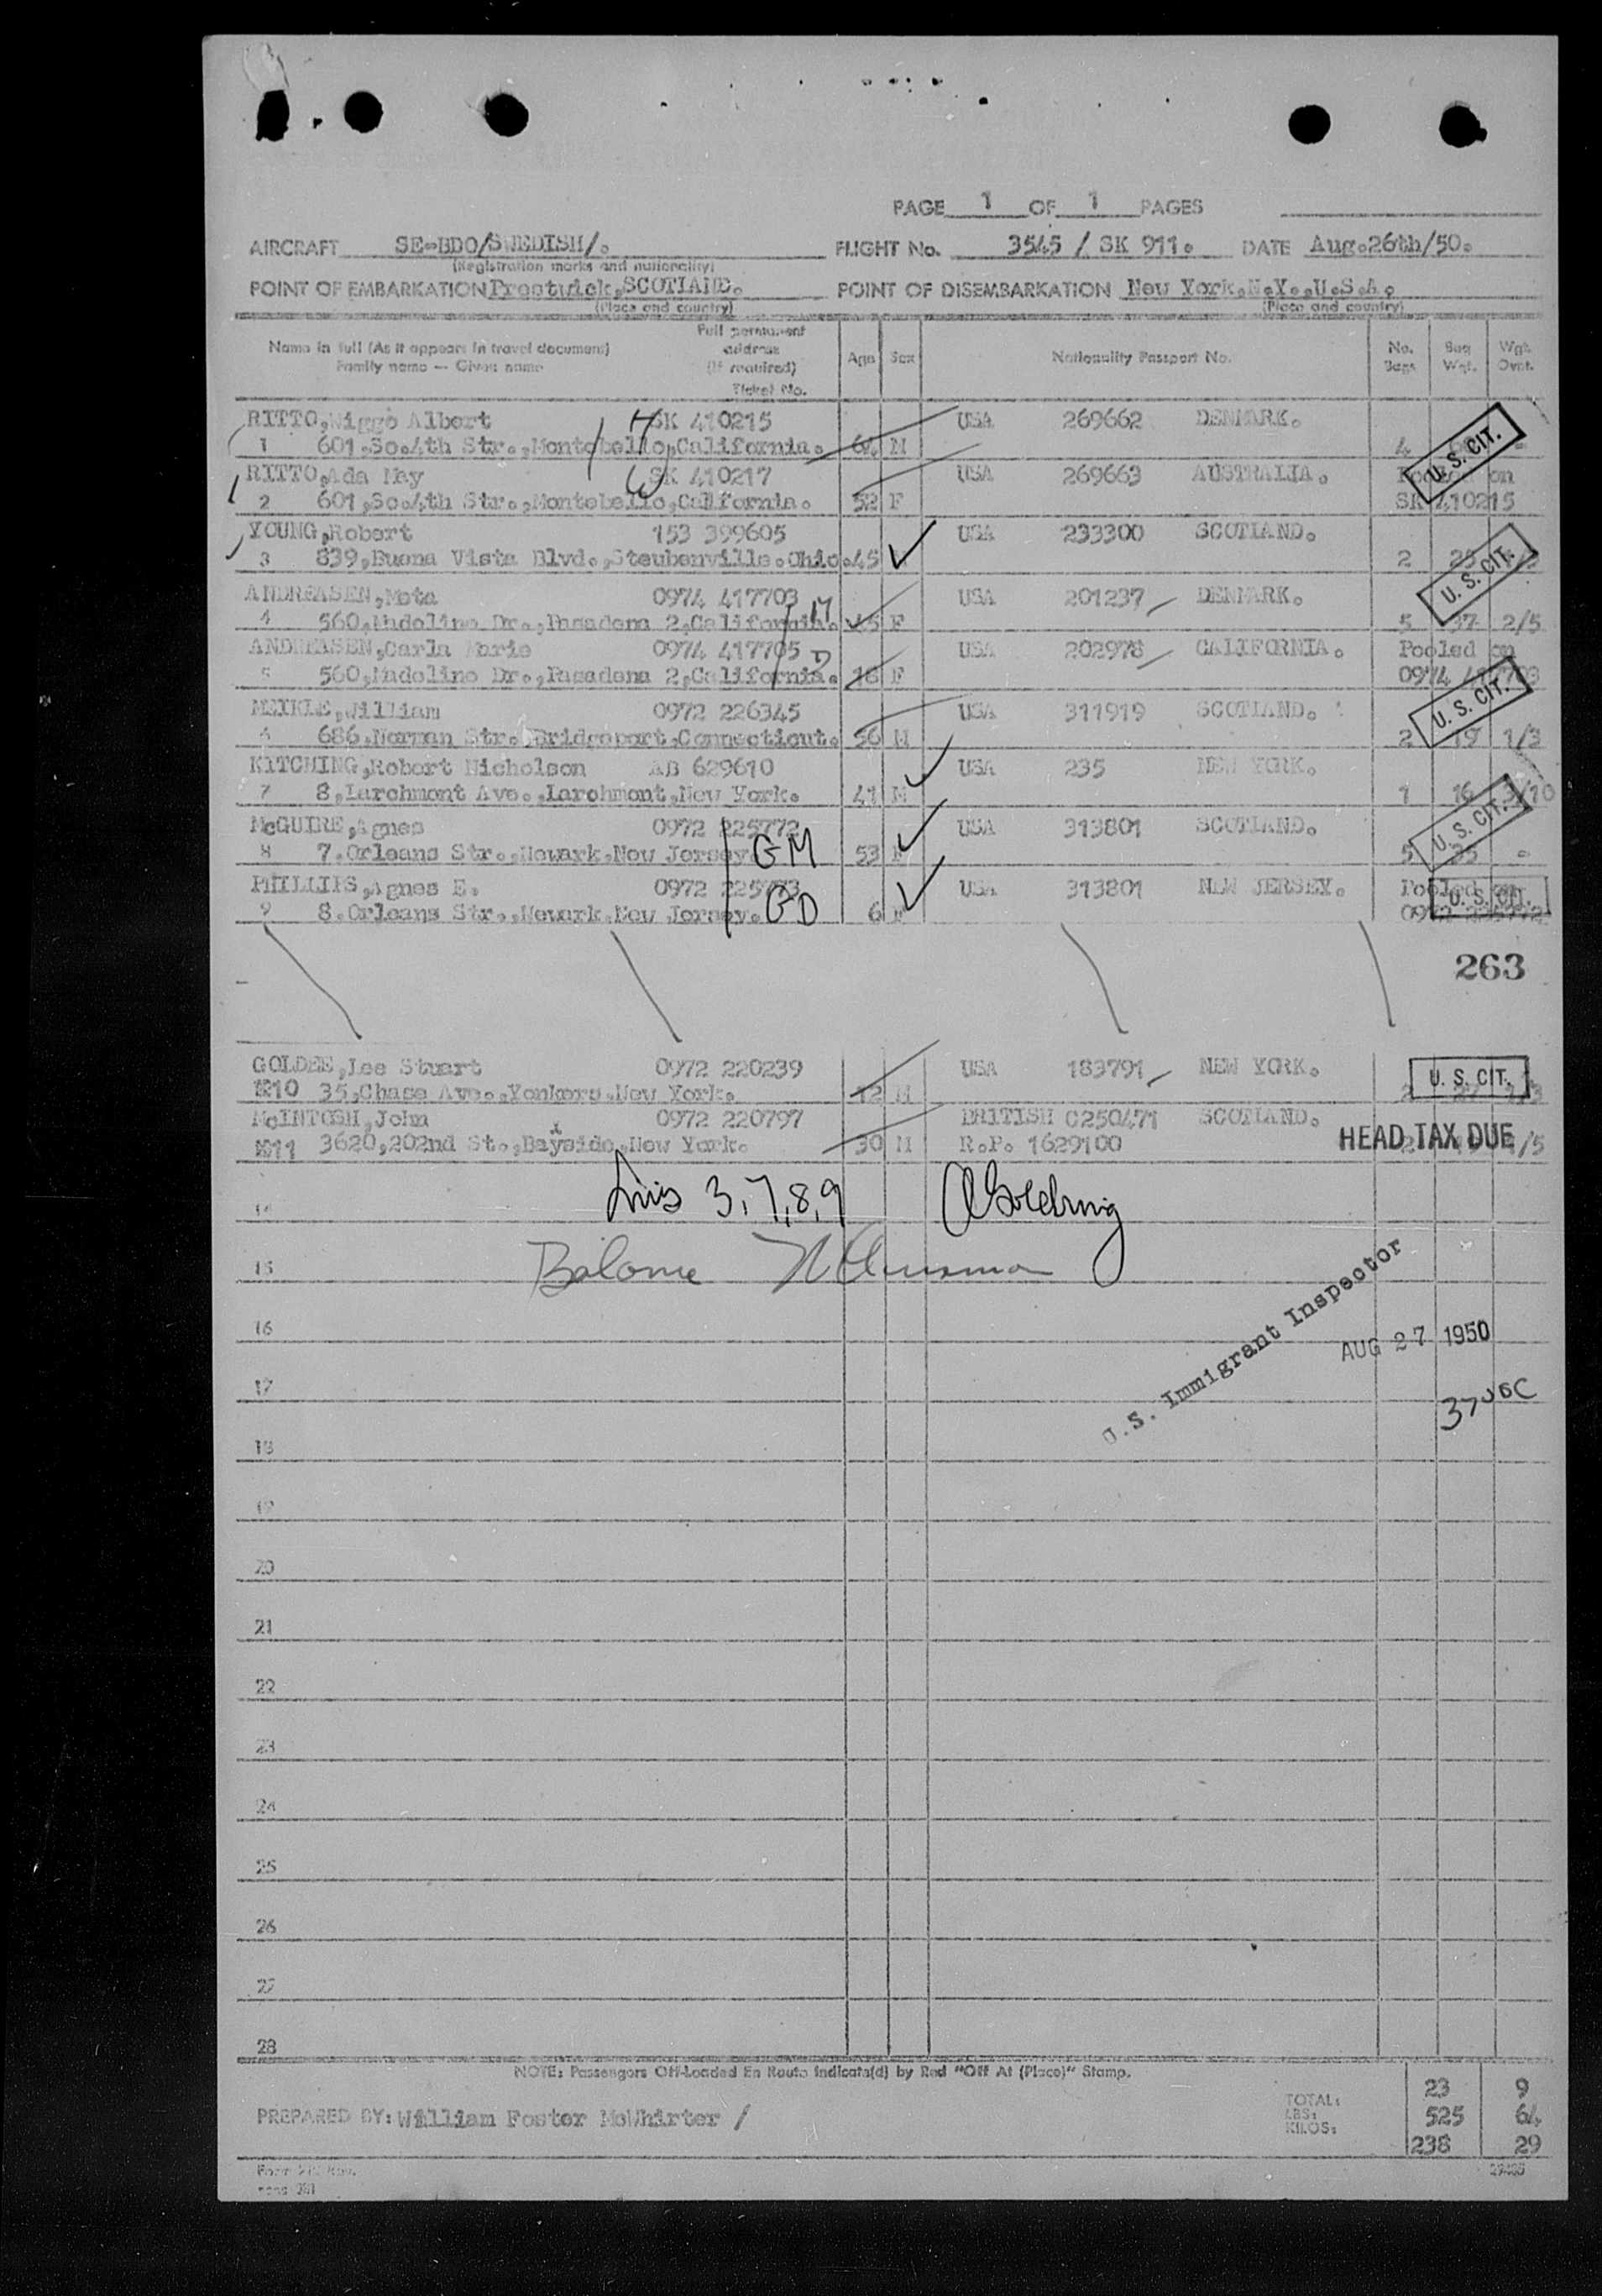 PAGE 1 OF 1 PAGES
AIRCRAFT SE-BDO/SWEDISH/. FLIGHT No. 3545 / SK 911. DATE Aug.26th/50.
(Registration marks and nationality)
POINT OF EMBARKATION Prestwick,SCOTLAND. POINT OF DISEMBARKATION New York.N.Y.,U.S.A.
(Place and country) (Place and country)
Name in full (As it appears in travel document) Family name — Given name Full permanent address (If required) Ticket No. Age Sex Nationality Passport No. No. Bags Bag Wgt. Wgt. Ovnt.
RITTO,Niggo Albert H SK 410215 USA 269662 DENMARK.
1 601.So.4th Str.,Montebello,California. 64 M 4 U. S. CIT. -
RITTO,Ada May W SK 410217 USA 269663 AUSTRALIA. Pooled on
2 601,So.4th Str.,Montebello,California. 52 F SK 410215
YOUNG,Robert 153 399605 USA 233300 SCOTLAND.
3 839,Buena Vista Blvd.,Steubenville.Ohio. 45 2 25 U. S. CIT.
ANDREASEN,Meta 0974 417703 USA 201237 DENMARK.
4 560,Madeline Dr.,Pasadena 2,California. M 45 F 5 37 2/5
ANDREASEN,Carla Marie 0974 417705 USA 202978 CALIFORNIA. Pooled on
5 560,Madeline Dr.,Pasadena 2,California. D 18 F 0974 417703
MEIKLE,William 0972 226345 USA 311919 SCOTLAND. U. S. CIT.
6 686.Norman Str.,Bridgeport,Connecticut. 56 M 2 19 1/3
KITCHING,Robert Nicholson AB 629610 USA 235 NEW YORK.
7 8,Larchmont Ave.,Larchmont,New York. 41 M 1 16 3/10
McGUIRE,Agnes 0972 225772 USA 313801 SCOTLAND. U. S. CIT.
8 7.Orleans Str.,Newark,New Jersey. GM 53 F 5 35 -
PHILLIPS,Agnes E. 0972 225773 USA 313801 NEW JERSEY. Pooled on
9 8.Orleans Str.,Newark.New Jersey. GD 6 F U. S. CIT. 0972 225772
263
GOLDEE,Lee Stuart 0972 220239 USA 183791 NEW YORK. U. S. CIT.
10 35,Chase Ave.,Yonkers.New York. 12 M 2 27 1/3
McINTOSH,John 0972 220797 BRITISH C250471 SCOTLAND.
11 3620,202nd St.,Bayside,New York. 30 M R.P. 1629100 HEAD TAX DUE 2 /5
3,7,8,9
14
15
U.S. Immigrant Inspector
16 AUG 27 1950
17
37 USC
18
19
20
21
22
23
24
25
26
27
28
NOTE: Passengers Off-Loaded En Route Indicate(d) by Red "Off At (Place)" Stamp.
TOTAL: 23 9
PREPARED BY: William Foster McWhirter / LBS: 525 64
KILOS: 238 29